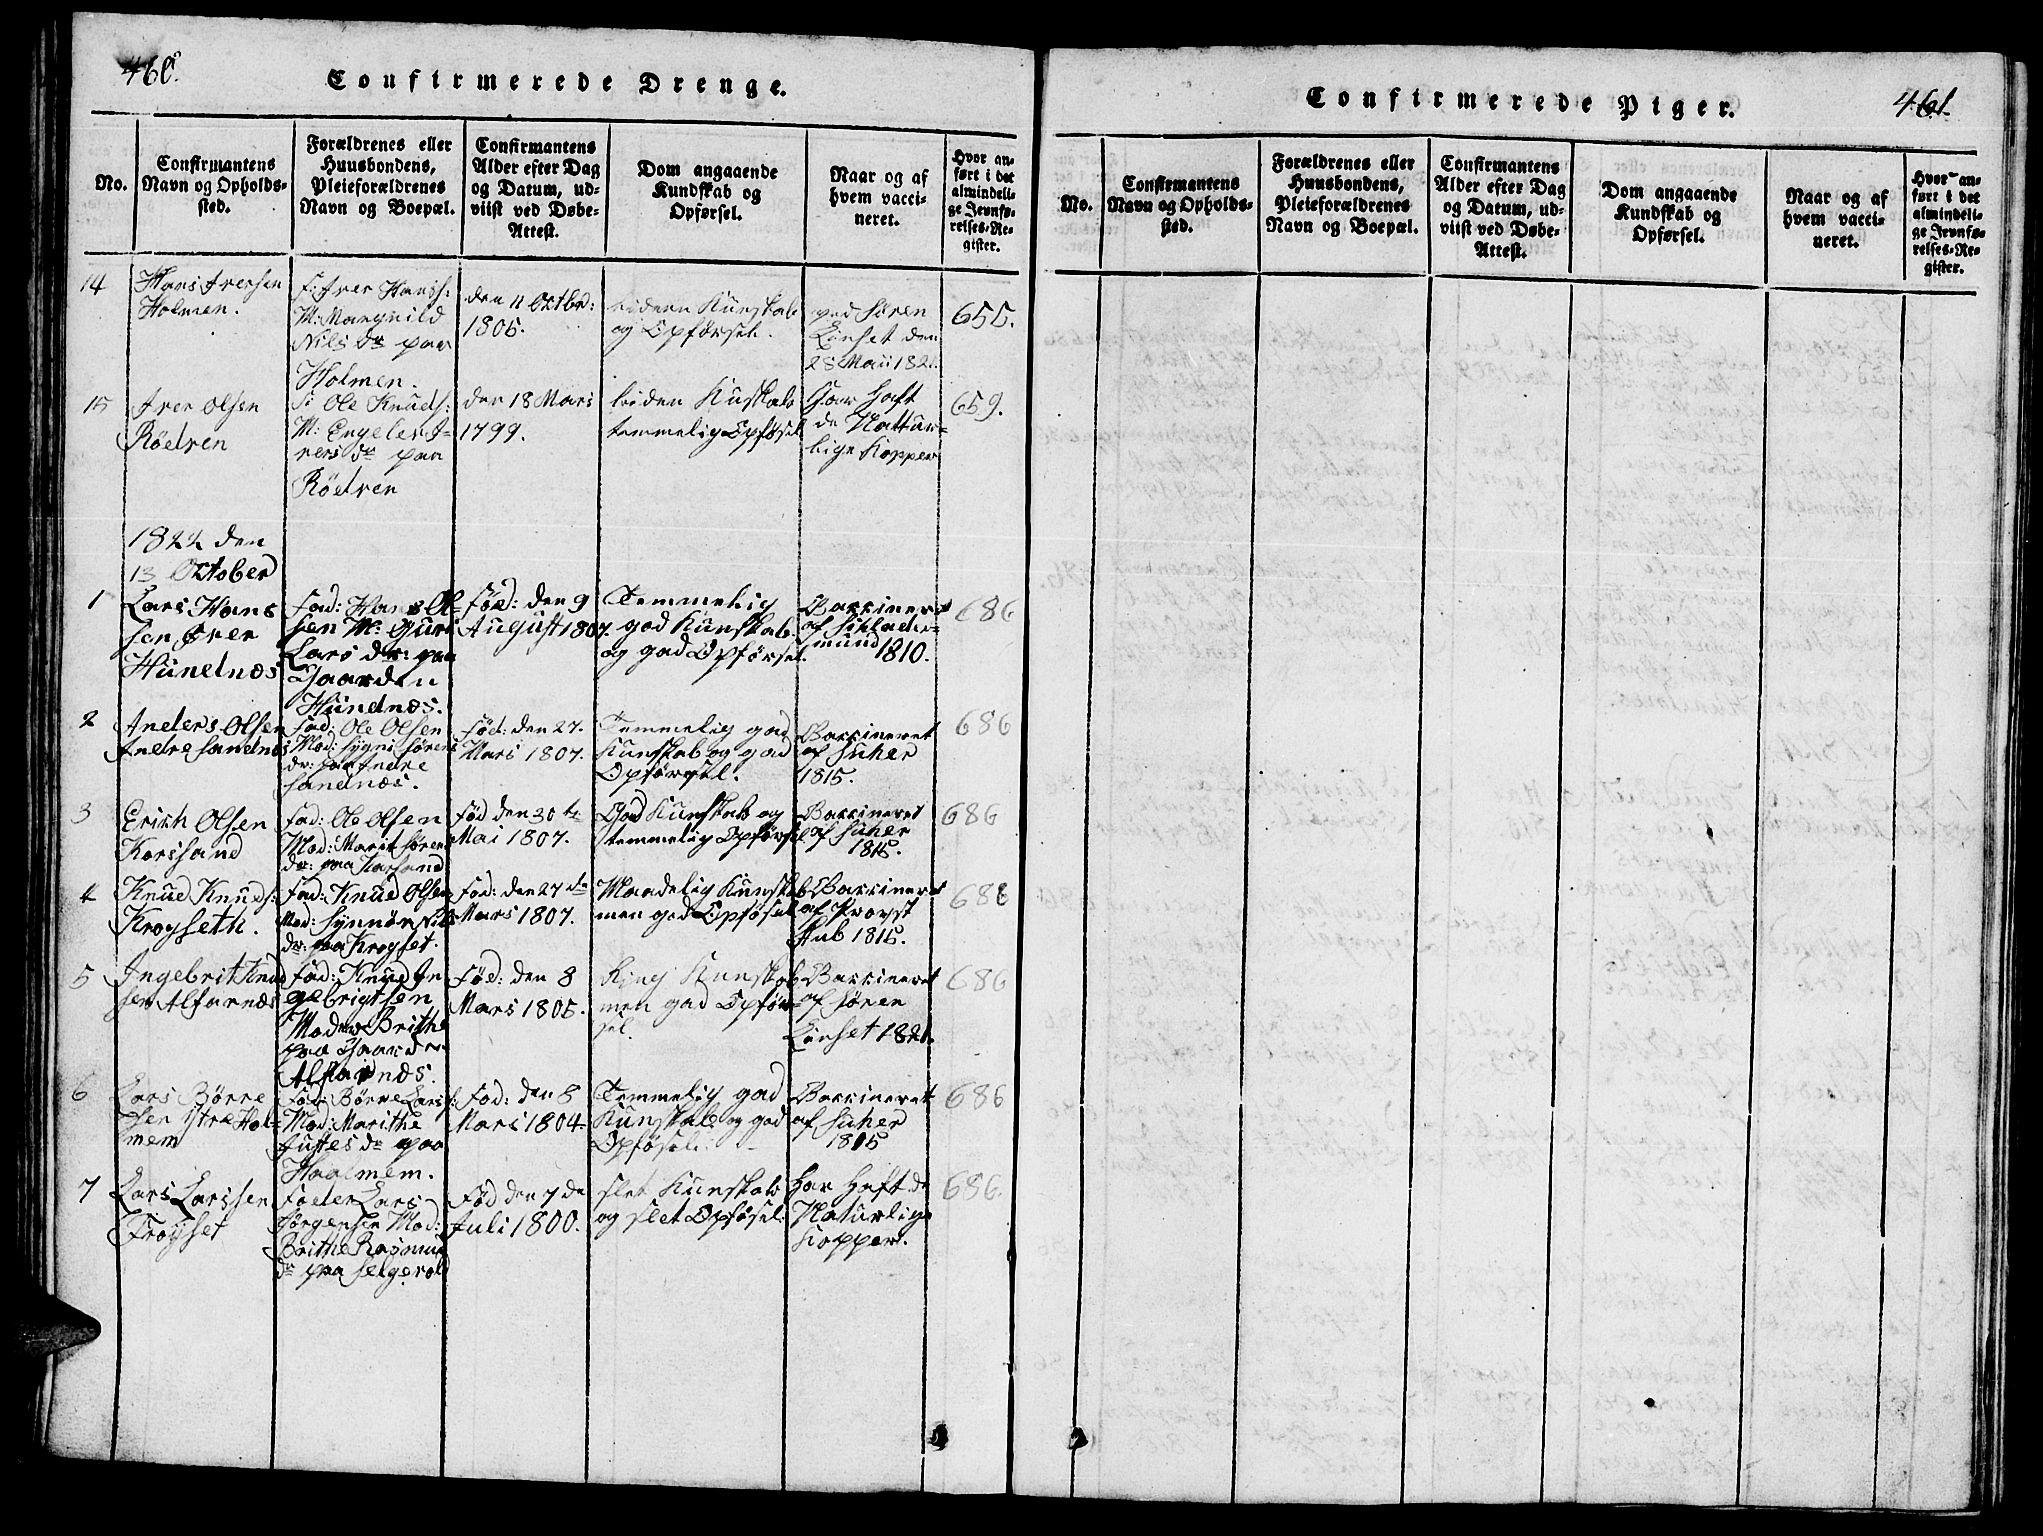 460.
Confirmerede Drenge.
No.
Confirmantens
Navn og Opholds-
sted.
Forældrenes eller
Huusbondens,
Pleieforældrenes
Navn og Boepæl.
Confirmantens
Alder efter Dag
og Datum, ud-
viist ved Døbe-
Attest.
Dom angaaende
Kundskab og
Opførsel.
Naar og af
hvem vacci-
neret.
Hvor an-
ført i det
almindeli-
ge Jevnfø-
relses-Re-
gister.
14
Hans Iversen
Holmen.
F: Iver Hanss:
M: Margnild
Nils Dr paa
Holmen.
den 11 Octbr:
1805.
Kunskab
og Opførsel.
ved Søren
Linset den
28 Maii 1821.
655.
15
Iver Olsen
Röelven
F: Ole Knuds:
M: Engeler I-
vers Dr paa
Röelven
den 18 Mars
1799.
liden Kuskab
temmelig Opføsel
Haar haft
de Nattur-
lige Kopper
659.
1822 den
13 October
1
Lars Hans
sen Iver
Hünelnæs
Fad: Hans Ol-
sen M: Guri
Lars dr: paa
Gaarden
Hündnæs.
Fød: den 9
August 1807.
Temmelig
god Kunskab
og god Opførsel.
Vaccineret
af
mund 1810.
686
2
Anders Olsen
Indre Sandnæs
Fad: Ole Olsen
Mod: Sygni Sørens
dr: paa Indre
Sandnæs.
Fød: den 27.
Mars 1807.
Temmelig god
Kunskab og god
Opførsel.
Vaccineret
af Suher
1815.
686
3
Erich Olsen
Korssand
Fad: Ole Olsen
Mod: Marit Sørens
dr: paa Karsand
Fød den 30 te
Mai 1807.
God Kunskab og
temmelig Opførsel
Vaccineret
af Suher
1815.
686
4
Knud Knuds:
Kroyseth.
Fad: Knud Olsen
Mod: Synnör Nils
dr: paa Kroyset.
Fød: den 27 de
Mars 1807.
Maadelig Kunskab
men god Opføsel
Vaccineret
af Provst
Aub 1815.
686
5
Ingebrit Knud
sen Alfarnæs
Fad: Knud In
gebrigtsen
Moder Brithe
paa Gaard
Alfarnæs.
Fød: den 8
Mars 1805.
Ring Kunskab
men god Opfør-
sel.
Vaccineret
af Søren
Linset 1821.
686
6
Lars Børre
sen Ytre Hol-
mem
Fad: Børre Larss:
Mod: Marithe
Justes Dr paa
Haolmem.
Fød: den 8
Mars 1804
Temmelig god
Kunskab og god
Opføsel.
Vaccineret
af Suher
1815
686
7
Lars Larssen
Froyset
Fader Lars
Jørgensen Mod:
Brithe Rasmus
dr paa Selgevold
Fød den 7 de
Juli 1800.
Slet Kunskab
og slet Opføsel.
Har haft de
Naturlige
Kopper.
686.
461.
Confirmerede Piger.
No.
Confirmantens
Navn og Opholds-
sted.
Forældrenes eller
Huusbondens,
Pleieforældrenes
Navn og Boepæl.
Confirmantens
Alder efter Dag
og Datum, ud-
viist ved Døbe-
Attest.
Dom angaaende
Kundskab og
Opførsel.
Naar og af
hvem vacci-
neret.
Hvor an-
ført i det
almindeli-
ge Jevnfø-
relses-Re-
gister.